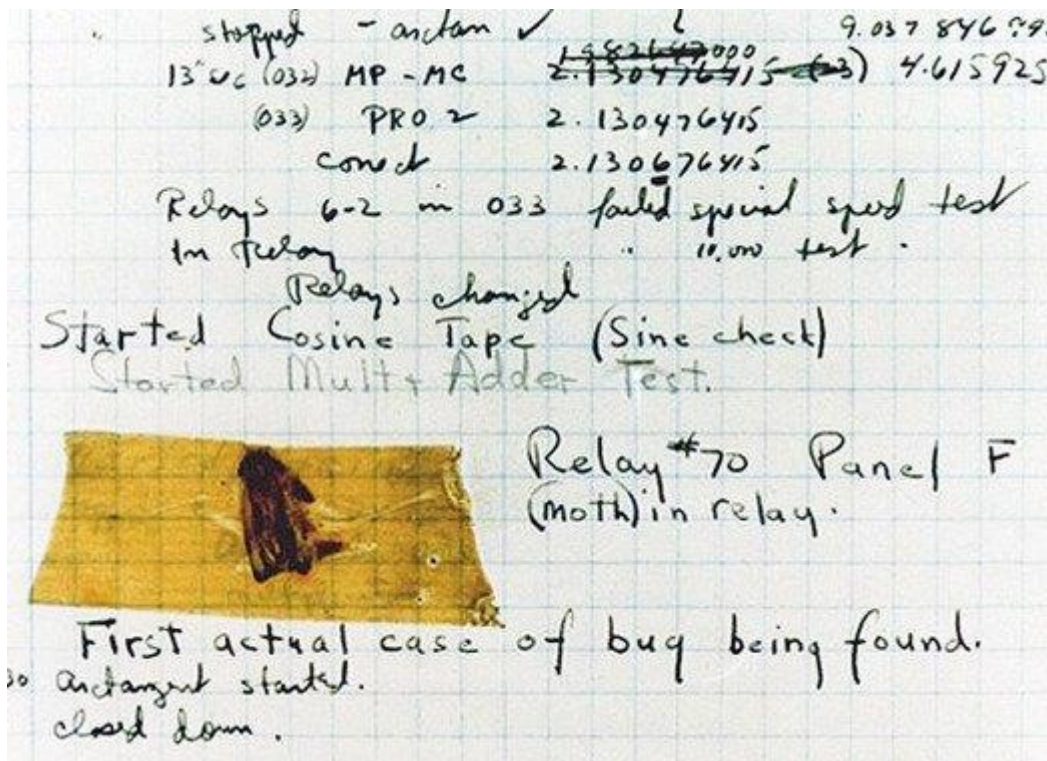 stopped - arctan ✓ 9.037 846
1.982647000
13" uc (032) MP - MC 2.130476415 (-3) 4.615925
(033) PRO 2 2.130476415
correct 2.130676415
Relays 6-2 in 033 failed special speed test
In Relay " 10,000 test .
Relays changed
Started Cosine Tape (Sine check)
Started Mult + Adder Test.
Relay #70 Panel F
(moth) in relay.
First actual case of bug being found.
arctangent started.
closed down.